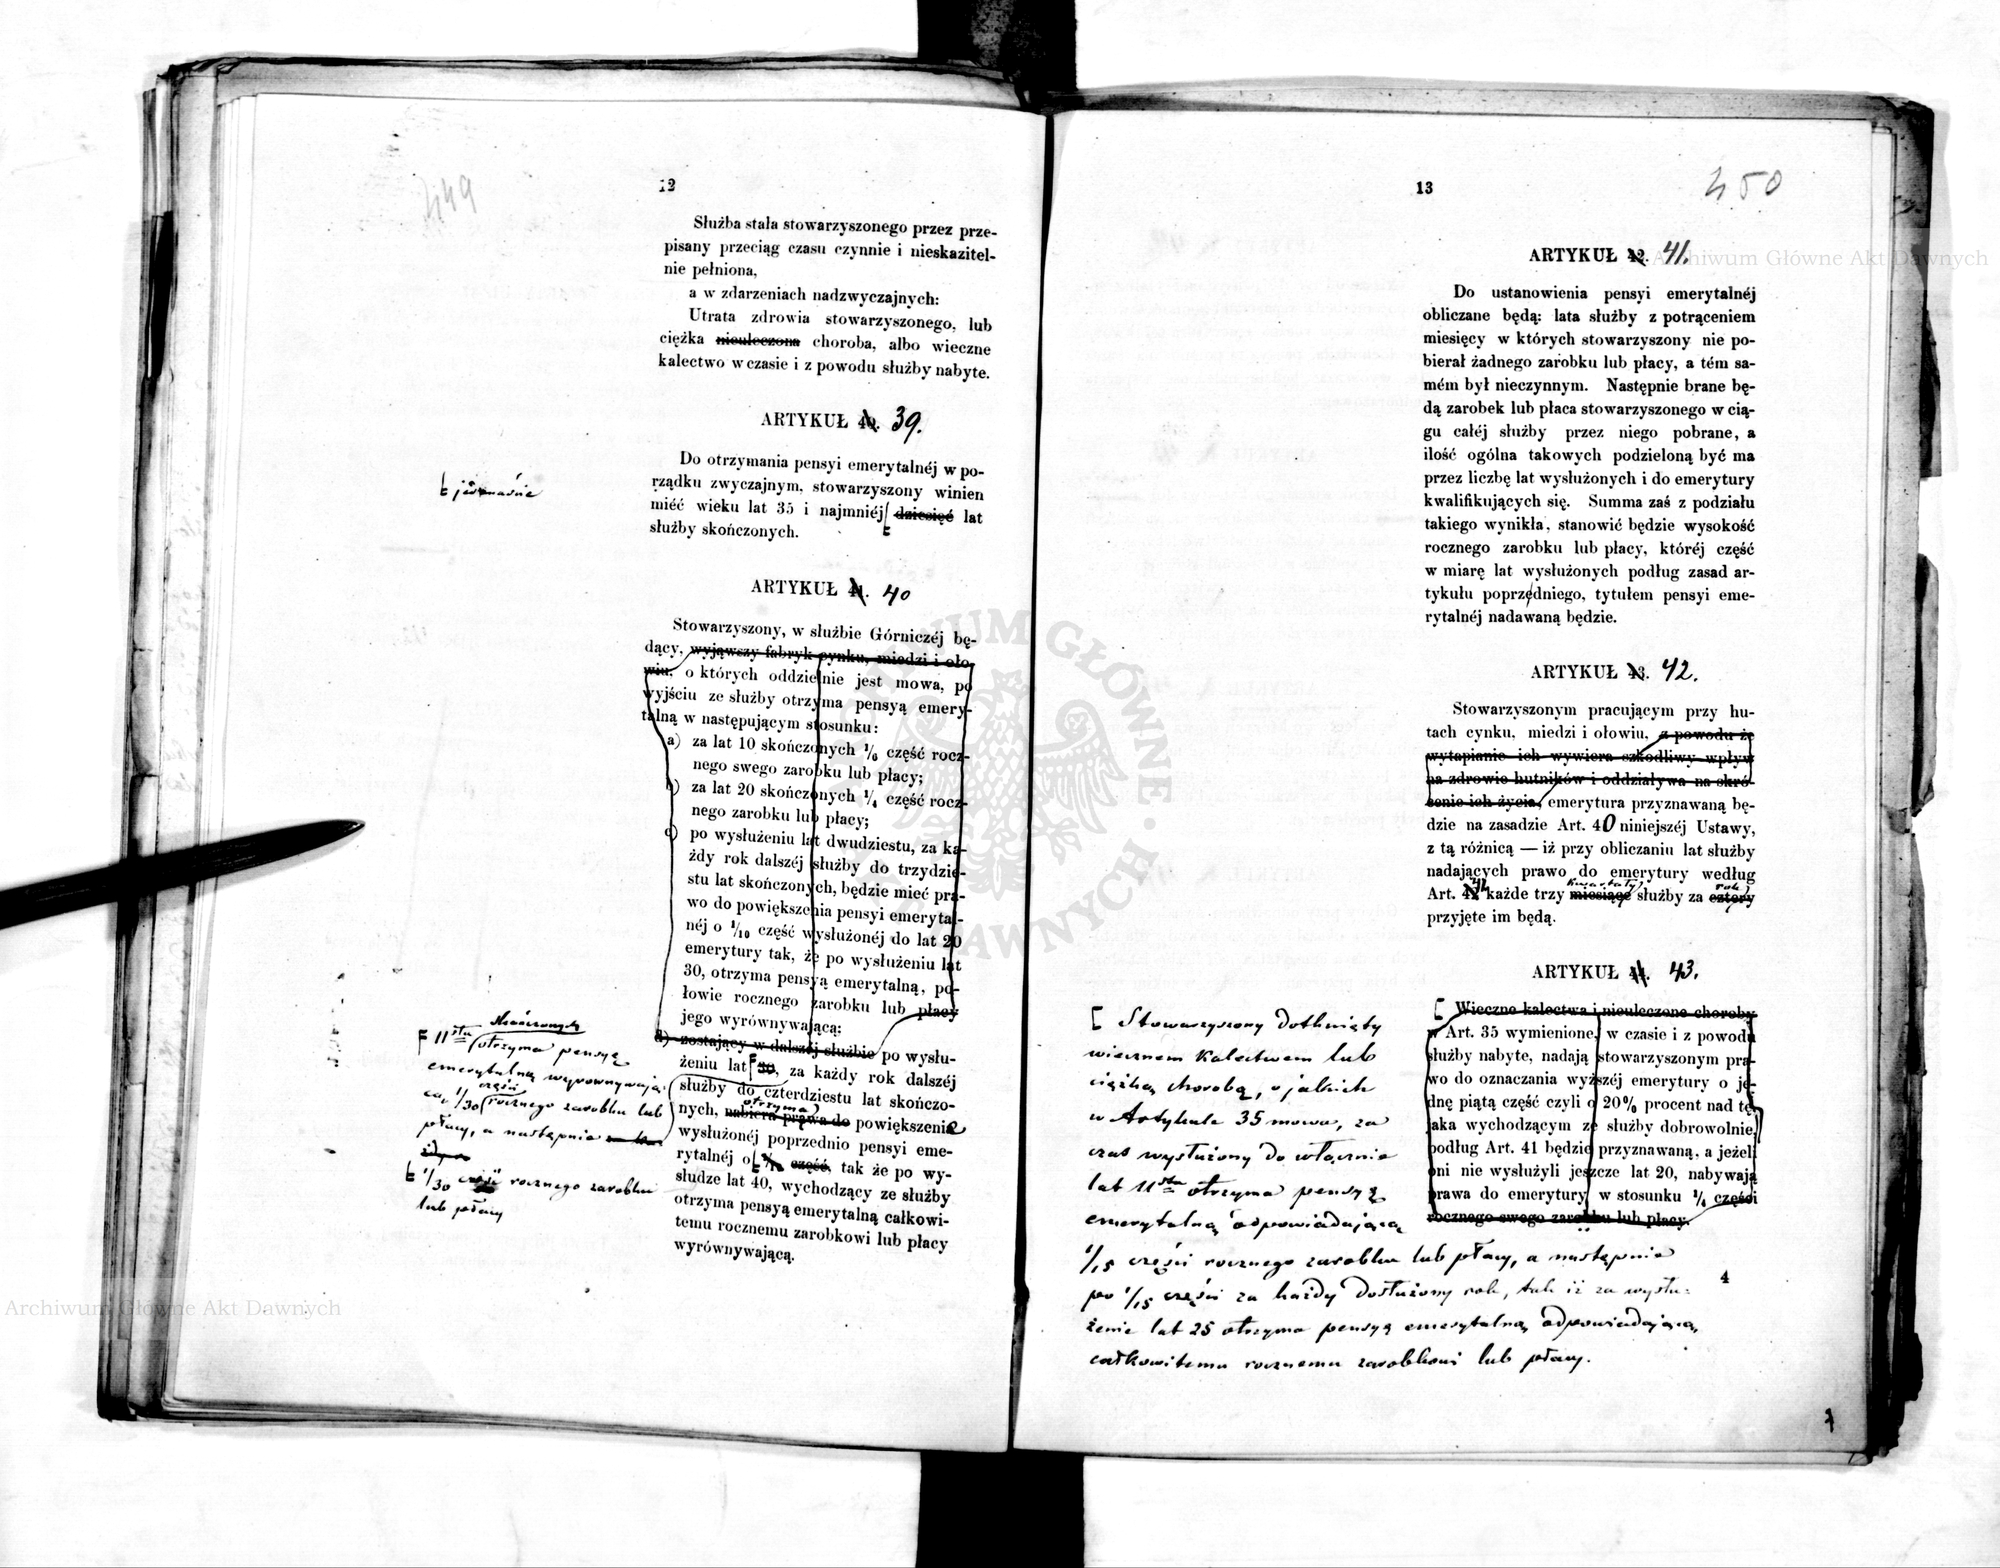 449
12
Służba stała stowarzyszonego przez prze-
pisany przeciąg czasu czynnie i nieskazitel-
nie pełniona,
a w zdarzeniach nadzwyczajnych:
Utrata zdrowia stowarzyszonego, lub
ciężka nieuleczona choroba, albo wieczne
kalectwo w czasie i z powodu służby nabyte.
ARTYKUŁ 40. 39.
Do otrzymania pensyi emerytalnéj w po-
rządku zwyczajnym, stowarzyszony winien
miéć wieku lat 35 i najmniéj dziesięć lat
służby skończonych.
jedenaście
ARTYKUŁ 41. 40
Stowarzyszony, w służbie Górniczéj bę-
dący, wyjąwszy fabryk cynku, miedzi i oło-
wiu, o których oddzielnie jest mowa, po
wyjściu ze służby otrzyma pensyą emery-
talną w następującym stosunku:
a) za lat 10 skończonych 1/6 część rocz-
nego swego zarobku lub płacy;
b) za lat 20 skończonych 1/4 część rocz-
nego zarobku lub płacy;
c) po wysłużeniu lat dwudziestu, za ka-
żdy rok dalszéj służby do trzydzie-
stu lat skończonych, będzie mieć pra-
wo do powiększenia pensyi emerytal-
néj o 1/10 część wysłużonéj do lat 20
emerytury tak, że po wysłużeniu lat
30, otrzyma pensyą emerytalną, po-
łowie rocznego zarobku lub płacy
jego wyrównywającą:
d) zostający w dalszéj służbie po wysłu-
żeniu lat 30, za każdy rok dalszéj
służby do czterdziestu lat skończo-
nych, nabiera prawa do otrzyma powiększenie
wysłużonéj poprzednio pensyi eme-
rytalnéj o 1/10 część, tak że po wy-
słudze lat 40, wychodzący ze służby
otrzyma pensyą emerytalną całkowi-
temu rocznemu zarobkowi lub płacy
wyrównywającą.
skończonych
11stu otrzyma pensyą
emerytalną wyrownywają-
cą, 1/30 część rocznego zarobku lub
płacy, a następnie
1/30 część rocznego zarobku
lub płacy
13
450
ARTYKUŁ 42. 41.
Do ustanowienia pensyi emerytalnéj
obliczane będą: lata służby z potrąceniem
miesięcy w których stowarzyszony nie po-
bierał żadnego zarobku lub płacy, a tém sa-
mém był nieczynnym. Następnie brane bę-
dą zarobek lub płaca stowarzyszonego w cią-
gu całéj służby przez niego pobrane, a
ilość ogólna takowych podzieloną być ma
przez liczbę lat wysłużonych i do emerytury
kwalifikujących się. Summa zaś z podziału
takiego wynikła, stanowić będzie wysokość
rocznego zarobku lub płacy, któréj część
w miarę lat wysłużonych podług zasad ar-
tykułu poprzedniego, tytułem pensyi eme-
rytalnéj nadawaną będzie.
ARTYKUŁ 43. 42.
Stowarzyszonym pracującym przy hu-
tach cynku, miedzi i ołowiu, z powodu że
wytapianie ich wywiera szkodliwy wpływ
na zdrowie hutników i oddziaływa na skró-
cenie ich życia, emerytura przyznawaną bę-
dzie na zasadzie Art. 40 niniejszéj Ustawy,
z tą różnicą — iż przy obliczaniu lat służby
nadających prawo do emerytury według
Art. 41 każde trzy miesiące kwartały służby za cztery rok
przyjęte im będą.
ARTYKUŁ 44. 43.
Wieczne kalectwa i nieuleczone choroby
w Art. 35 wymienione, w czasie i z powodu
służby nabyte, nadają stowarzyszonym pra-
wo do oznaczania wyższéj emerytury o je-
dnę piątą część czyli o 20% procent nad tę,
jaka wychodzącym ze służby dobrowolnie,
podług Art. 41 będzie przyznawaną, a jeżeli
oni nie wysłużyli jeszcze lat 20, nabywają
prawa do emerytury w stosunku 1/4 części
rocznego swego zarobku lub płacy.
Stowarzyszony dotknięty
wiecznem kalectwem lub
ciężką chorobą, o jakich
w Artykule 35 mowa, za
czas wysłużony do włącznie
lat 11stu otrzyma pensyą
emerytalną odpowiadającą
1/15 części rocznego zarobku lub płacy, a następnie
po 1/15 części za każdy dosłużony rok, tak iż za wysłu-
żenie lat 25 otrzyma pensyą emerytalną odpowiadającą
całkowitemu rocznemu zarobkowi lub płacy.
4
Archiwum Główne Akt Dawnych
Archiwum Główne Akt Dawnych
ARCHIWUM GŁÓWNE AKT DAWNYCH